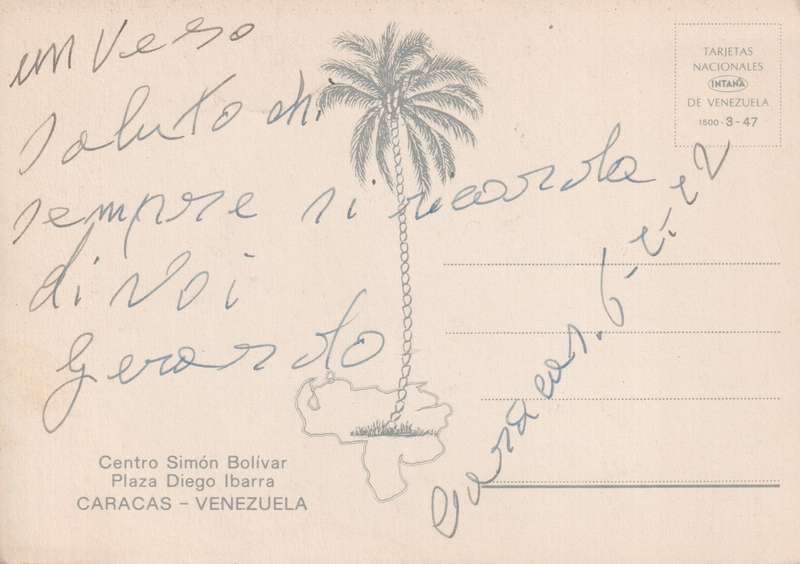 un vero
saluto chi
sempre si ricorda
di voi
Gerardo
Caracas. 6-2-
TARJETAS
NACIONALES
INTANA
DE VENEZUELA
1500-3-47
Centro Simón Bolívar
Plaza Diego Ibarra
CARACAS - VENEZUELA